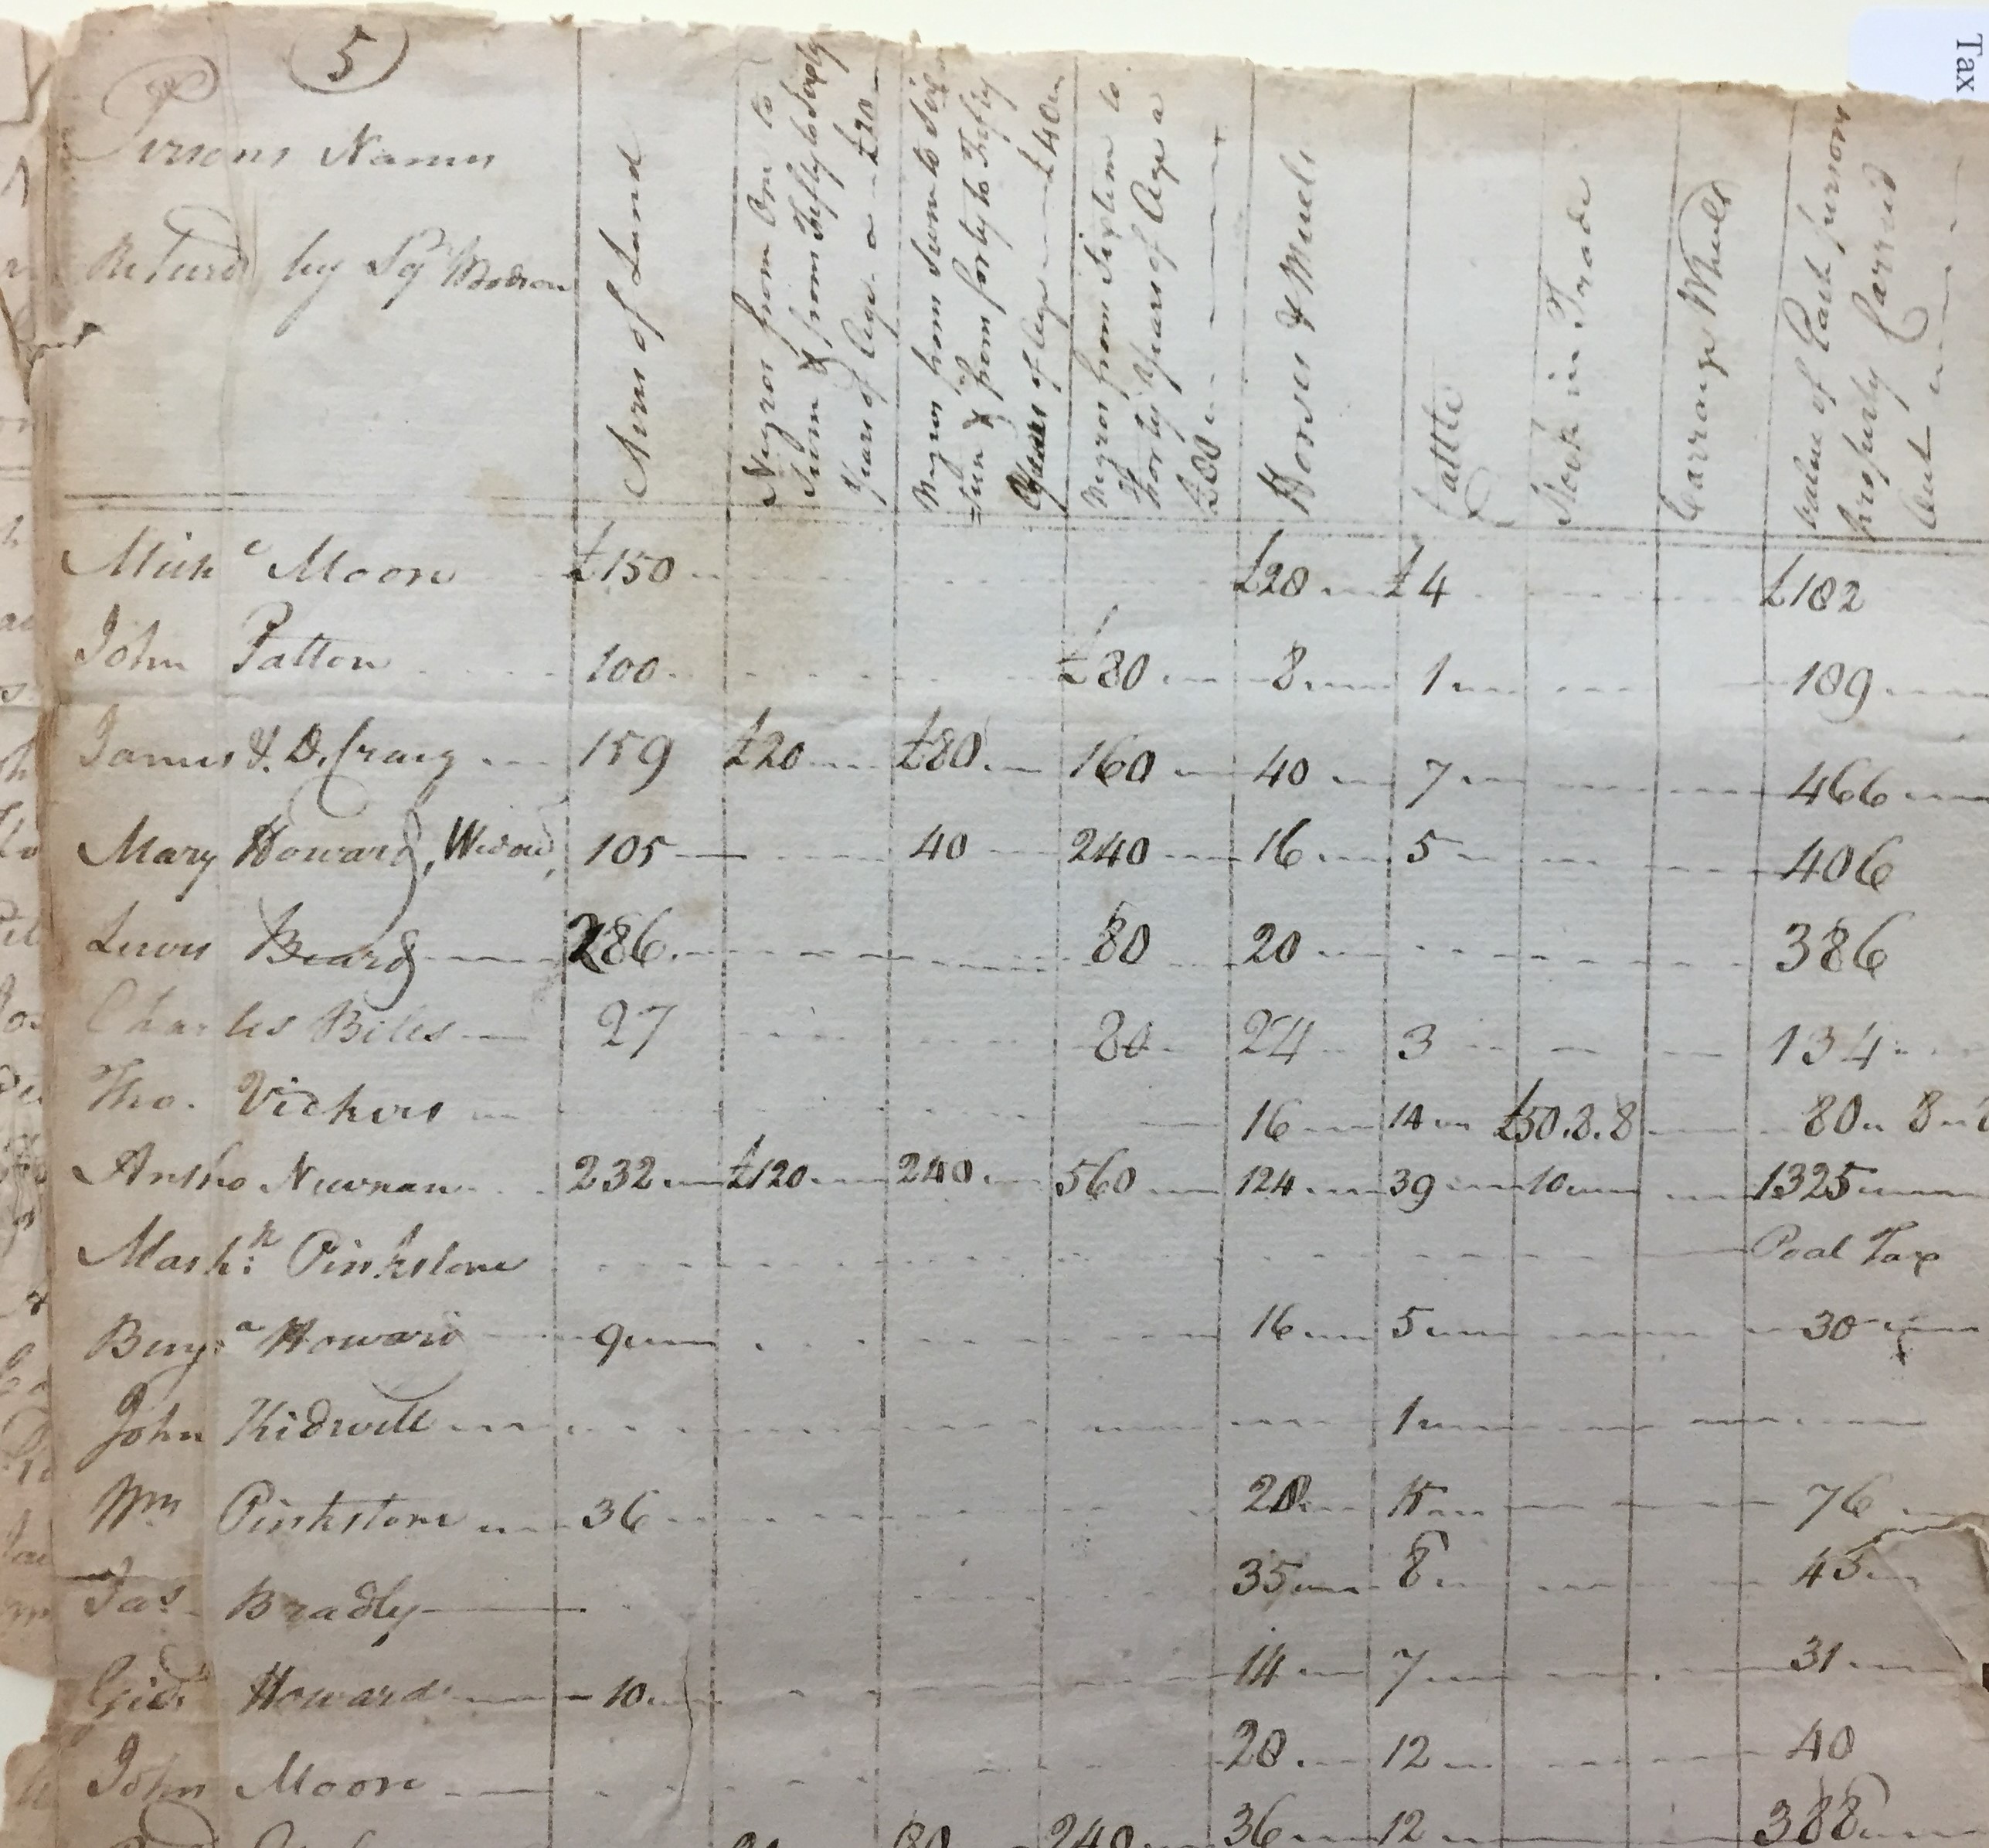 Tax
5
Persons Names
Return'd by Sqr
Acres of Land
Negros from One to
Seven & from Fifty to Sixty
Years of Age a £20
Negros from Seven to Six
=teen & from forty to Fifty
Years of Age £40
Negros from Sixteen to
Forty Years of Age a
£80
Horses & Muels
Cattle
Stock in Trade
Carriage Wheels
value of Each person
property Carried
out
Mich Moore £150 £28 £4 £182
John Patton 100 £80 8 1 189
James & D. Craig 159 £20 £80 160 40 7 466
Mary Howard, Widow, 105 40 240 16 5 406
Lewis Beard 286 80 20 386
Charles Biles 27 80 24 3 134
Tho. Vickers 16 14 £50.8.8 80 8
Antho Newnan 232 £120 240 560 124 39 10 1325
Mash:k Pinkstone Poal Tax
Benja Howard 9 16 5 30
John Kidwell 1
Wm Pinkstone 36 76
Jas. Bradly 35 8 43
Gid. Howard 10 14 7 31
John Moore 28 12 40
80 240 36 12 388